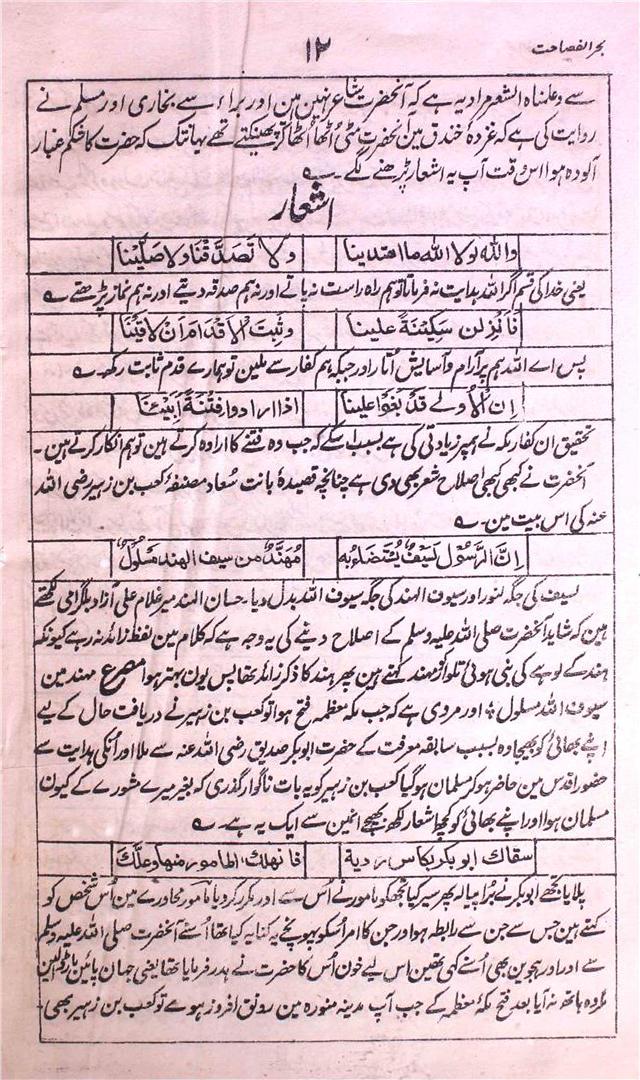 بحر الفصاحت
۱۲
سے وعلمناہ الشعر مراد یہ ہے کہ آنحضرت شاعر نہین ہین اور براء سے بخاری اور مسلم نے
روایت کی ہے کہ غزوۂ خندق مین آنحضرت مٹی اُٹھا اُٹھا کر پھینکتے تھے یہانتک کہ حضرت کا شکم غبار
آلودہ ہوا اس وقت آپ یہ اشعار پڑھنے لگے ؎
اشعار
واللہ لولا اللہ ما اھتدینا ولا تَصَدَّقْنا ولا صَلَّیْنا
یعنی خدا کی قسم اگر اللہ ہدایت نہ فرماتا تو ہم راہ راست نہ پاتے اور نہ ہم صدقہ دیتے اور نہ ہم نماز پڑھتے ؎
فَانْزِلن سَکِیْنَةً علینا وثَبِّت الاَقْدامَ اَنْ لاقَیْنَا
پس اے اللہ ہم پر آرام و آسایش اُتار اور جبکہ ہم کفار سے ملین تو ہمارے قدم ثابت رکھ ؎
اِن الاُولٰی قَدْ بَغَوا علینا اذا ارادوا فِتْنَةً اَبَیْنَا
تحقیق ان کفار مکہ نے ہمپر زیادتی کی ہے بسبب اسکے کہ جب وہ فتنے کا ارادہ کرتے ہین تو ہم انکار کرتے ہین۔
آنحضرت نے کبھی کبھی اصلاح شعر بھی دی ہے چنانچہ قصیدۂ بانت سُعاد مصنفۂ کعب بن زہیر رضی اللہ
عنہ کی اس بیت مین ؎
اِنَّ الرَّسُوْل لَسَیفٌ یُسْتَضَاءُ بِہ مُھَنَّدٌ من سیف الھند مَسْلُولٗ
لسیف کی جگہ لنور اور سیوف الہند کی جگہ سیوف اللہ بدل دیا۔ حسان الہند میر غلام علی آزاد بلگرامی لکھتے
ہین کہ شاید آنحضرت صلی اللہ علیہ وسلم کے اصلاح دینے کی یہ وجہ ہے کہ کلام مین لفظ زائد نہ رہے کیونکہ
ہند کے لوہے کی بنی ہوئی تلوار کو مہند کہتے ہین پھر ہند کا ذکر زائد تھا پس یون بہتر ہوا مصرع مہند من
سیوف اللہ مسلول ؛ اور مروی ہے کہ جب مکہ معظمہ فتح ہوا تو کعب بن زہیر نے دریافت حال کے لیے
اپنے بھائی کو بھیجا وہ بسبب سابقہ معرفت کے حضرت ابوبکر صدیق رضی اللہ عنہ سے ملا اور اُنکی ہدایت سے
حضور اقدس مین حاضر ہوکر مسلمان ہوگیا کعب بن زہیر کو یہ بات ناگوار گذری کہ بغیر میرے مشورے کے کیون
مسلمان ہوا اور اپنے بھائی کو کچھ اشعار لکھ بھیجے انمین سے ایک یہ ہے ؎
سقاك ابوبکر بکاس ردیة فانھلك المامور منھا وعلَّك
پلایا تجھے ابوبکر نے بُرا پیالہ پھر سیر کیا تجھکو مامور نے اُس سے اور مکرر کردیا مامور محاورے مین اُس شخص کو
کہتے ہین جس سے جن سے رابطہ ہو اور جن کا امر اُسکو پہونچے یہ کنایہ کیا تھا اُسنے آنحضرت صلی اللہ علیہ وسلم
سے اور اور ہجوین بھی اُسنے کہی تھین اس لیے خون اُس کا حضرت نے ہدر فرمایا تھا یعنی جہان پائین مارڈالین
مگر وہ ہاتھ نہ آیا بعد فتح مکۂ معظمہ کے جب آپ مدینہ منورہ مین رونق افروز ہوے تو کعب بن زہیر بھی